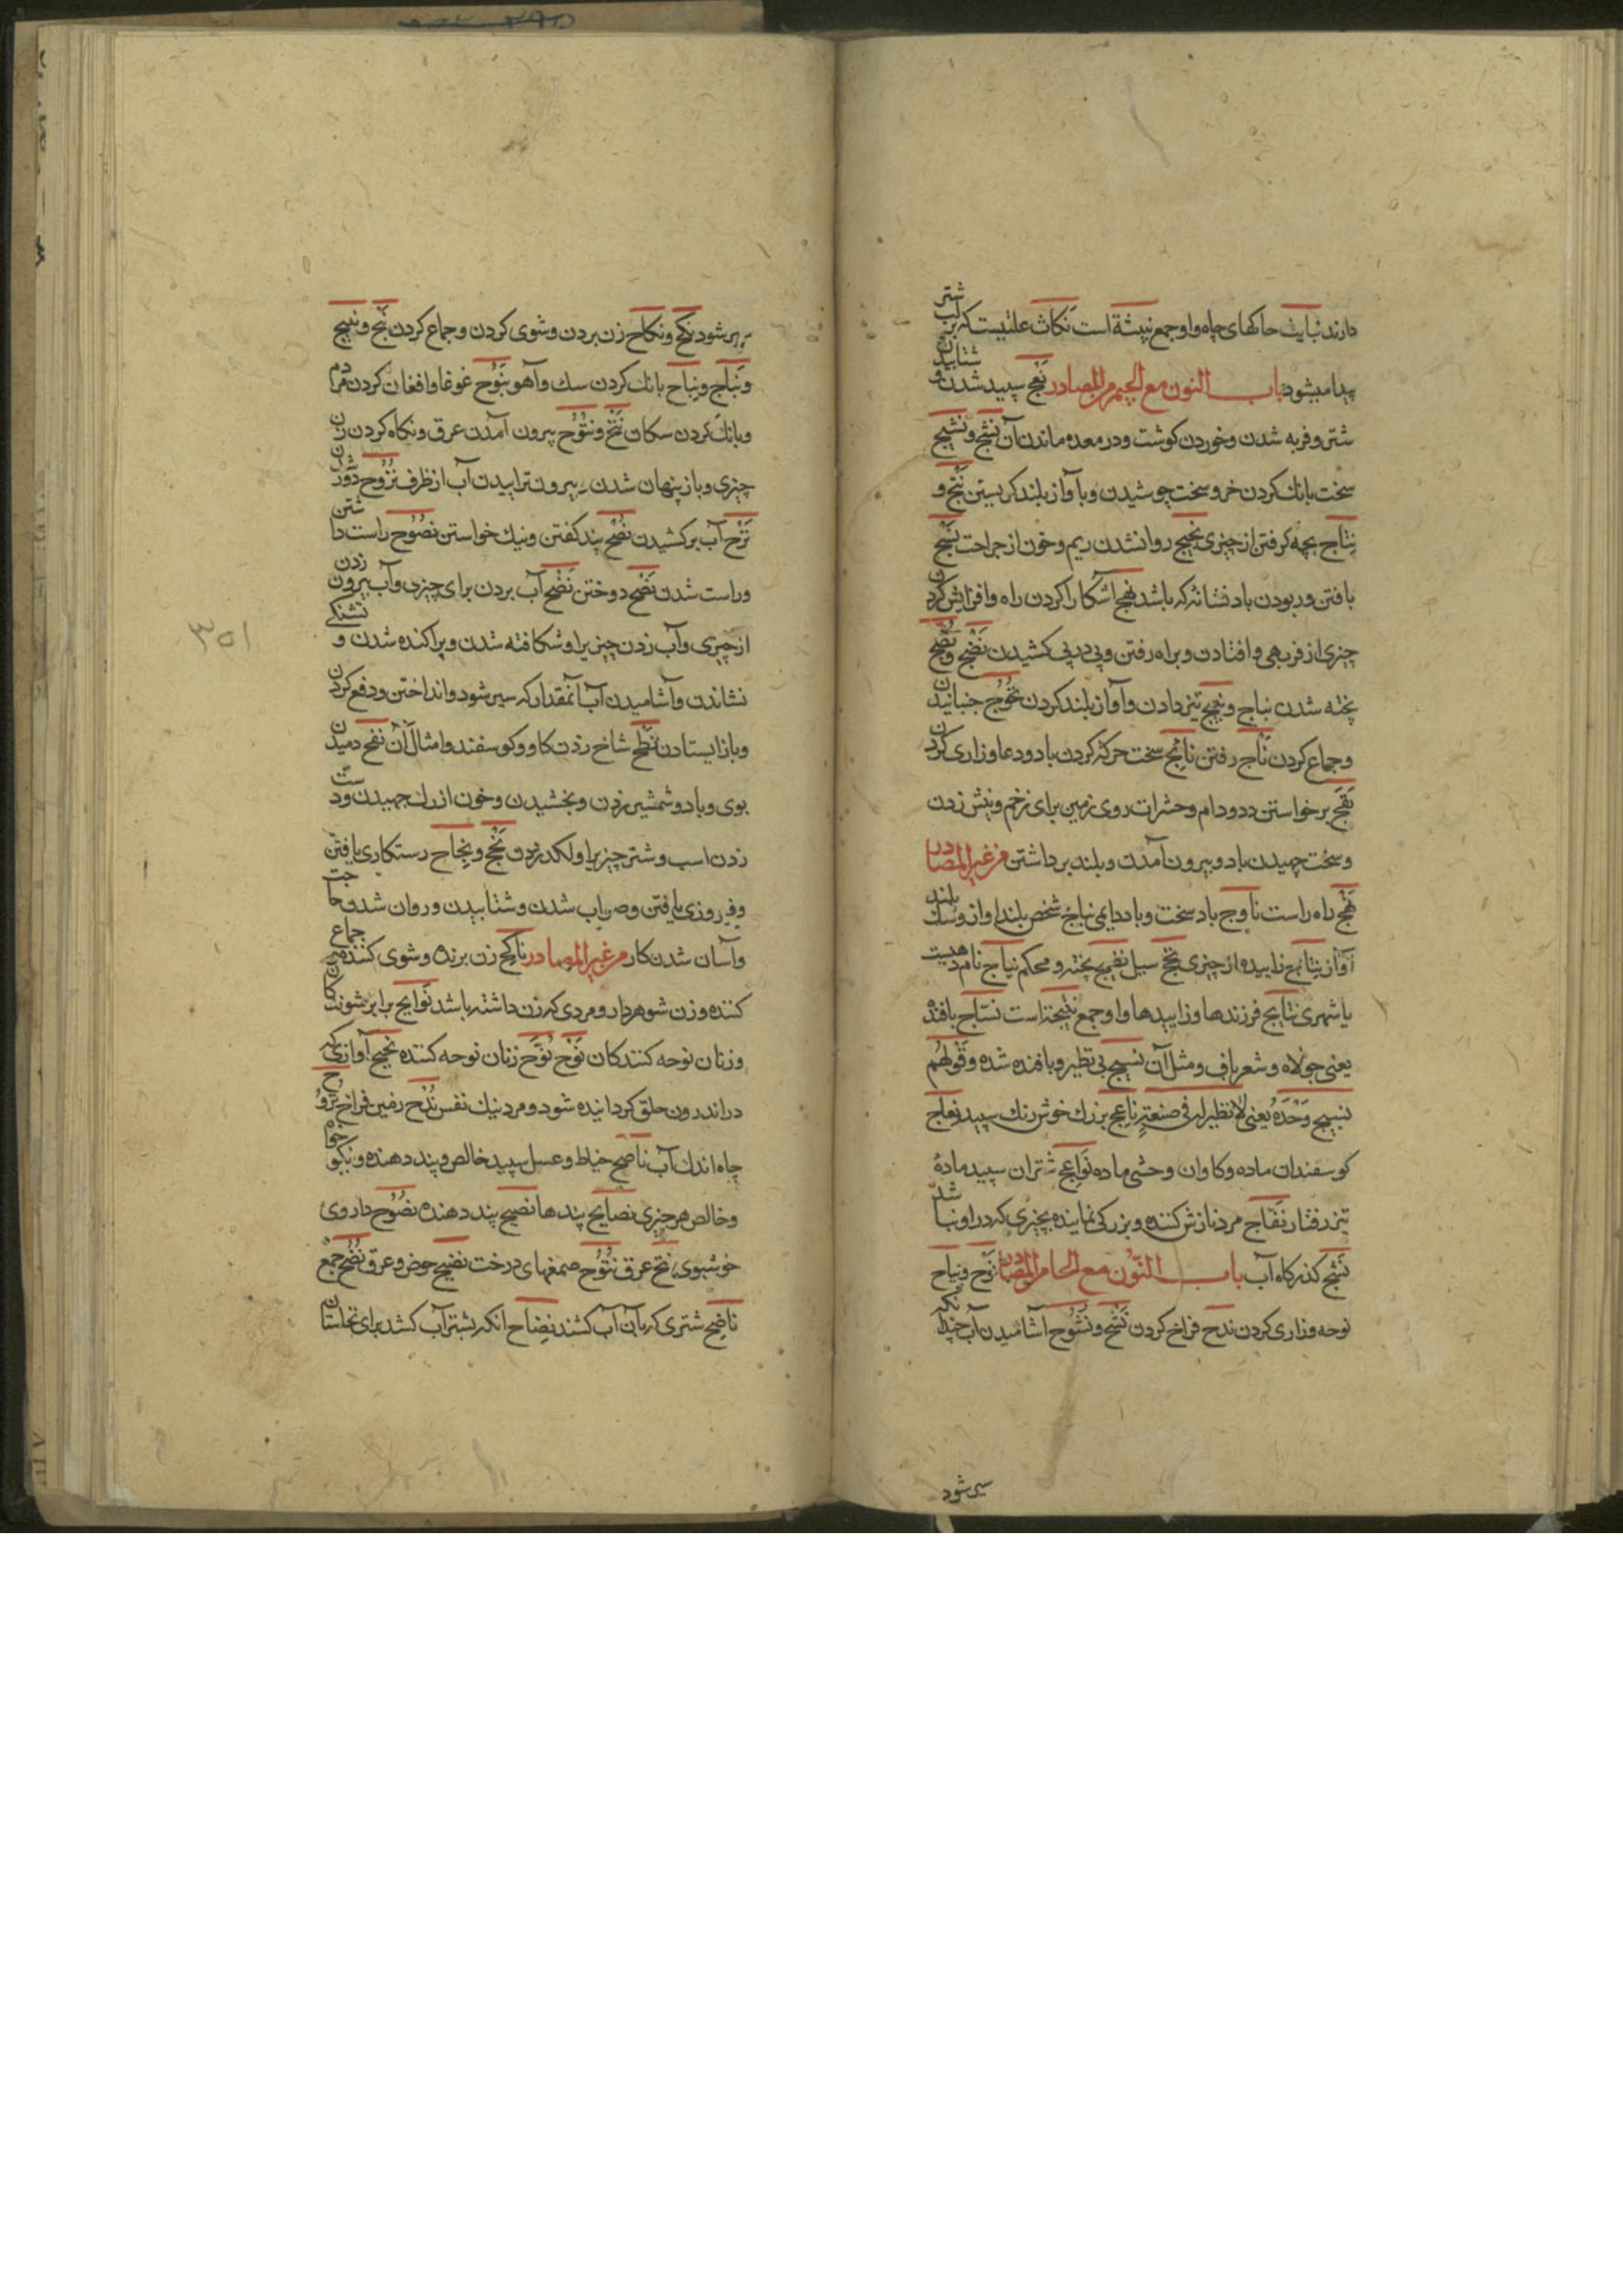 دارند نبایث خاکهای چاه و او جمع نبیثة است نکاث علتیست که بر لب شتر
پیدا میشود باب النون مع الجیم من المصادر نعج سپید شدن و شتابیدن
شتر و فربه شدن و خوردن کوشت و در معده ماندن آن نشج و نشیج
سخت بانك کردن خر و سخت جوشیدن و با آواز بلند کریستن نتج و
نتاج بچه کرفتن از چیزی نجیج روان شدن ریم و خون از جراحت نسج
بافتن و ربودن باد نشانه که باشد نهج آشکارا کردن راه و افزایش کردن
چیزی از فربهی و افتادن و براه رفتن و پی در پی کشیدن نضج و نضج
پخته شدن نباج و نبیج تیز دادن و آواز بلند کردن نخوج جنبانیدن
و جماع کردن ناج رفتن نائج سخت حرکة کردن باد و دعا و زاری کردن
نفج برخواستن دد و دام و حشرات روی زمین برای زخم و نیش زدن
و سخت جهیدن باد و بیرون آمدن و بلند برداشتن من غیر المصادر
نهج راه راست ناوج باد سخت و باد دایمی نباج شخص بلند اواز و سك بلند
آواز نتایج زاییده از چیزی نخج سیل نضیج پخته و محکم نیاج نام دهیست
یا شهری نتایج فرزندها و زاییدها و او جمع نتیجة است نساج بافنده
یعنی جولاه و شعرباف و مثل آن نسیج بی نظیر و بافنده شده و قولهم
نسیج وحده یعنی لا نظیر له فی صنعته ناعج بزرك خوش رنك سپید نعاج
کوسفندان ماده و کاوان وحشی ماده نواعج شتران سپید ماده
تیز رفتار نفاج مرد نازش کننده و بزرکی نماینده بچیزی که در او نباشد
نشج کذرکاه آب باب النون مع الحا من المصادر نوح و نیاح
نوحه و زاری کردن ندح فراخ کردن نشح و نشوح آشامیدن آب چندانکه
سیر شود
سیر شود نکح و نکاح زن بردن و شوی کردن و جماع کردن نبح و نبیح
و نباح و نباح بانك کردن سك و آهو نبوح غوغا و افغان کردن مردم
و بانك کردن سکان نتح و نتوح بیرون آمدن عرق و نکاه کردن
چیزی و باز پنهان شدن بیرون تراییدن آب از ظرف نزوح دور شدن
نزح آب برکشیدن نصح پند کفتن و نیك خواستن نصوح راست داشتن
و راست شدن نصح دوختن نضح آب بردن برای چیزی و آب بیرون زدن
از چیزی و آب زدن چیزیرا و شکافته شدن و پراکنده شدن و تشنکی
نشاندن و آشامیدن آب آنمقدار که سیر شود و انداختن و دفع کردن
و باز ایستادن نطح شاخ زدن کاو و کوسفند و امثال آن نفح دمیدن
بوی و باد و شمشیر زدن و بخشیدن و خون از رك جهیدن و دست
زدن اسب و شتر چیزیرا و لکد زدن نجح و نجاح رستکاری یافتن
و فیروزی یافتن و صواب شدن و شتابیدن و روان شدن حاجت
و آسان شدن کار من غیر المصادر ناکح زن برنده و شوی کننده و جماع
کننده و زن شوهردار و مردی که زن داشته باشد نوایح برابر شوندکان
و زنان نوحه کنندکان نوح نوح زنان نوحه کننده نحیح آوازی که
در اندرون حلق کردانیده شود و مرد نیك نفس ندح زمین فراخ نزوح
چاه اندك آب ناصح خیاط و عسل سپید خالص و پند دهنده و نیکو خواه
و خالص هر چیزی نصایح پندها نصیح پند دهنده نصوح داروی
خوشبوی نتح عرق نتوح صمغهای درخت نضیح حوض و عرق نضح جمع
ناضح شتری که بآن آب کشند نضاح انکه بشتر آب کشد برای نخلستان
۳۵۱